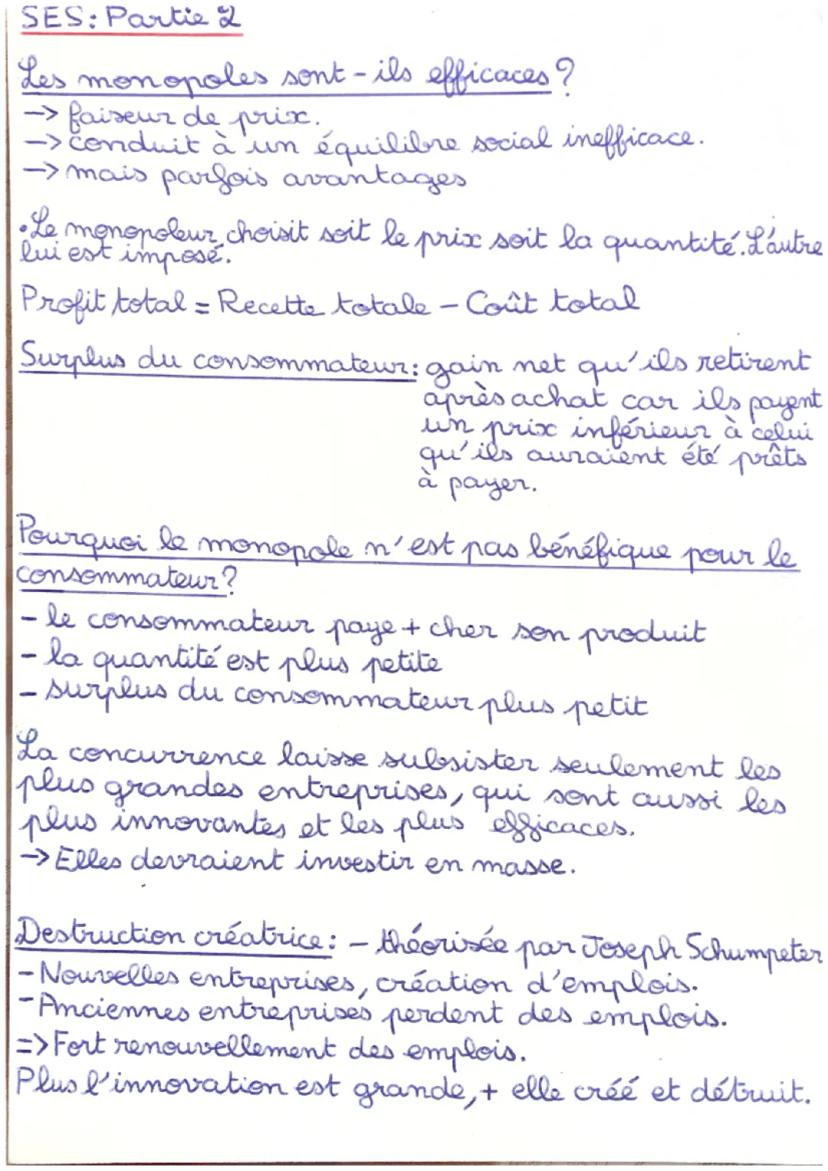 SES: Partie 2
Les monopoles sont-ils efficaces?
-> faiseur de prix.
-> conduit à un équilibre social inefficace.
-> mais parfois avantages
•Le monopoleur choisit soit le prix soit la quantité. L'autre
lui est imposé.
Profit total = Recette totale - Coût total
Surplus du consommateur: gain net qu'ils retirent
après achat car ils payent
un prix inférieur à celui
qu'ils auraient été prêts
à payer.
Pourquoi le monopole n'est pas bénéfique pour le
consommateur?
- le consommateur paye + cher son produit
- la quantité est plus petite
- surplus du consommateur plus petit
La concurrence laisse subsister seulement les
plus grandes entreprises, qui sont aussi les
plus innovantes et les plus efficaces.
-> Elles devraient investir en masse.
Destruction créatrice: - théorisée par Joseph Schumpeter
- Nouvelles entreprises, création d'emplois.
- Anciennes entreprises perdent des emplois.
=> Fort renouvellement des emplois.
Plus l'innovation est grande, + elle créé et détruit.